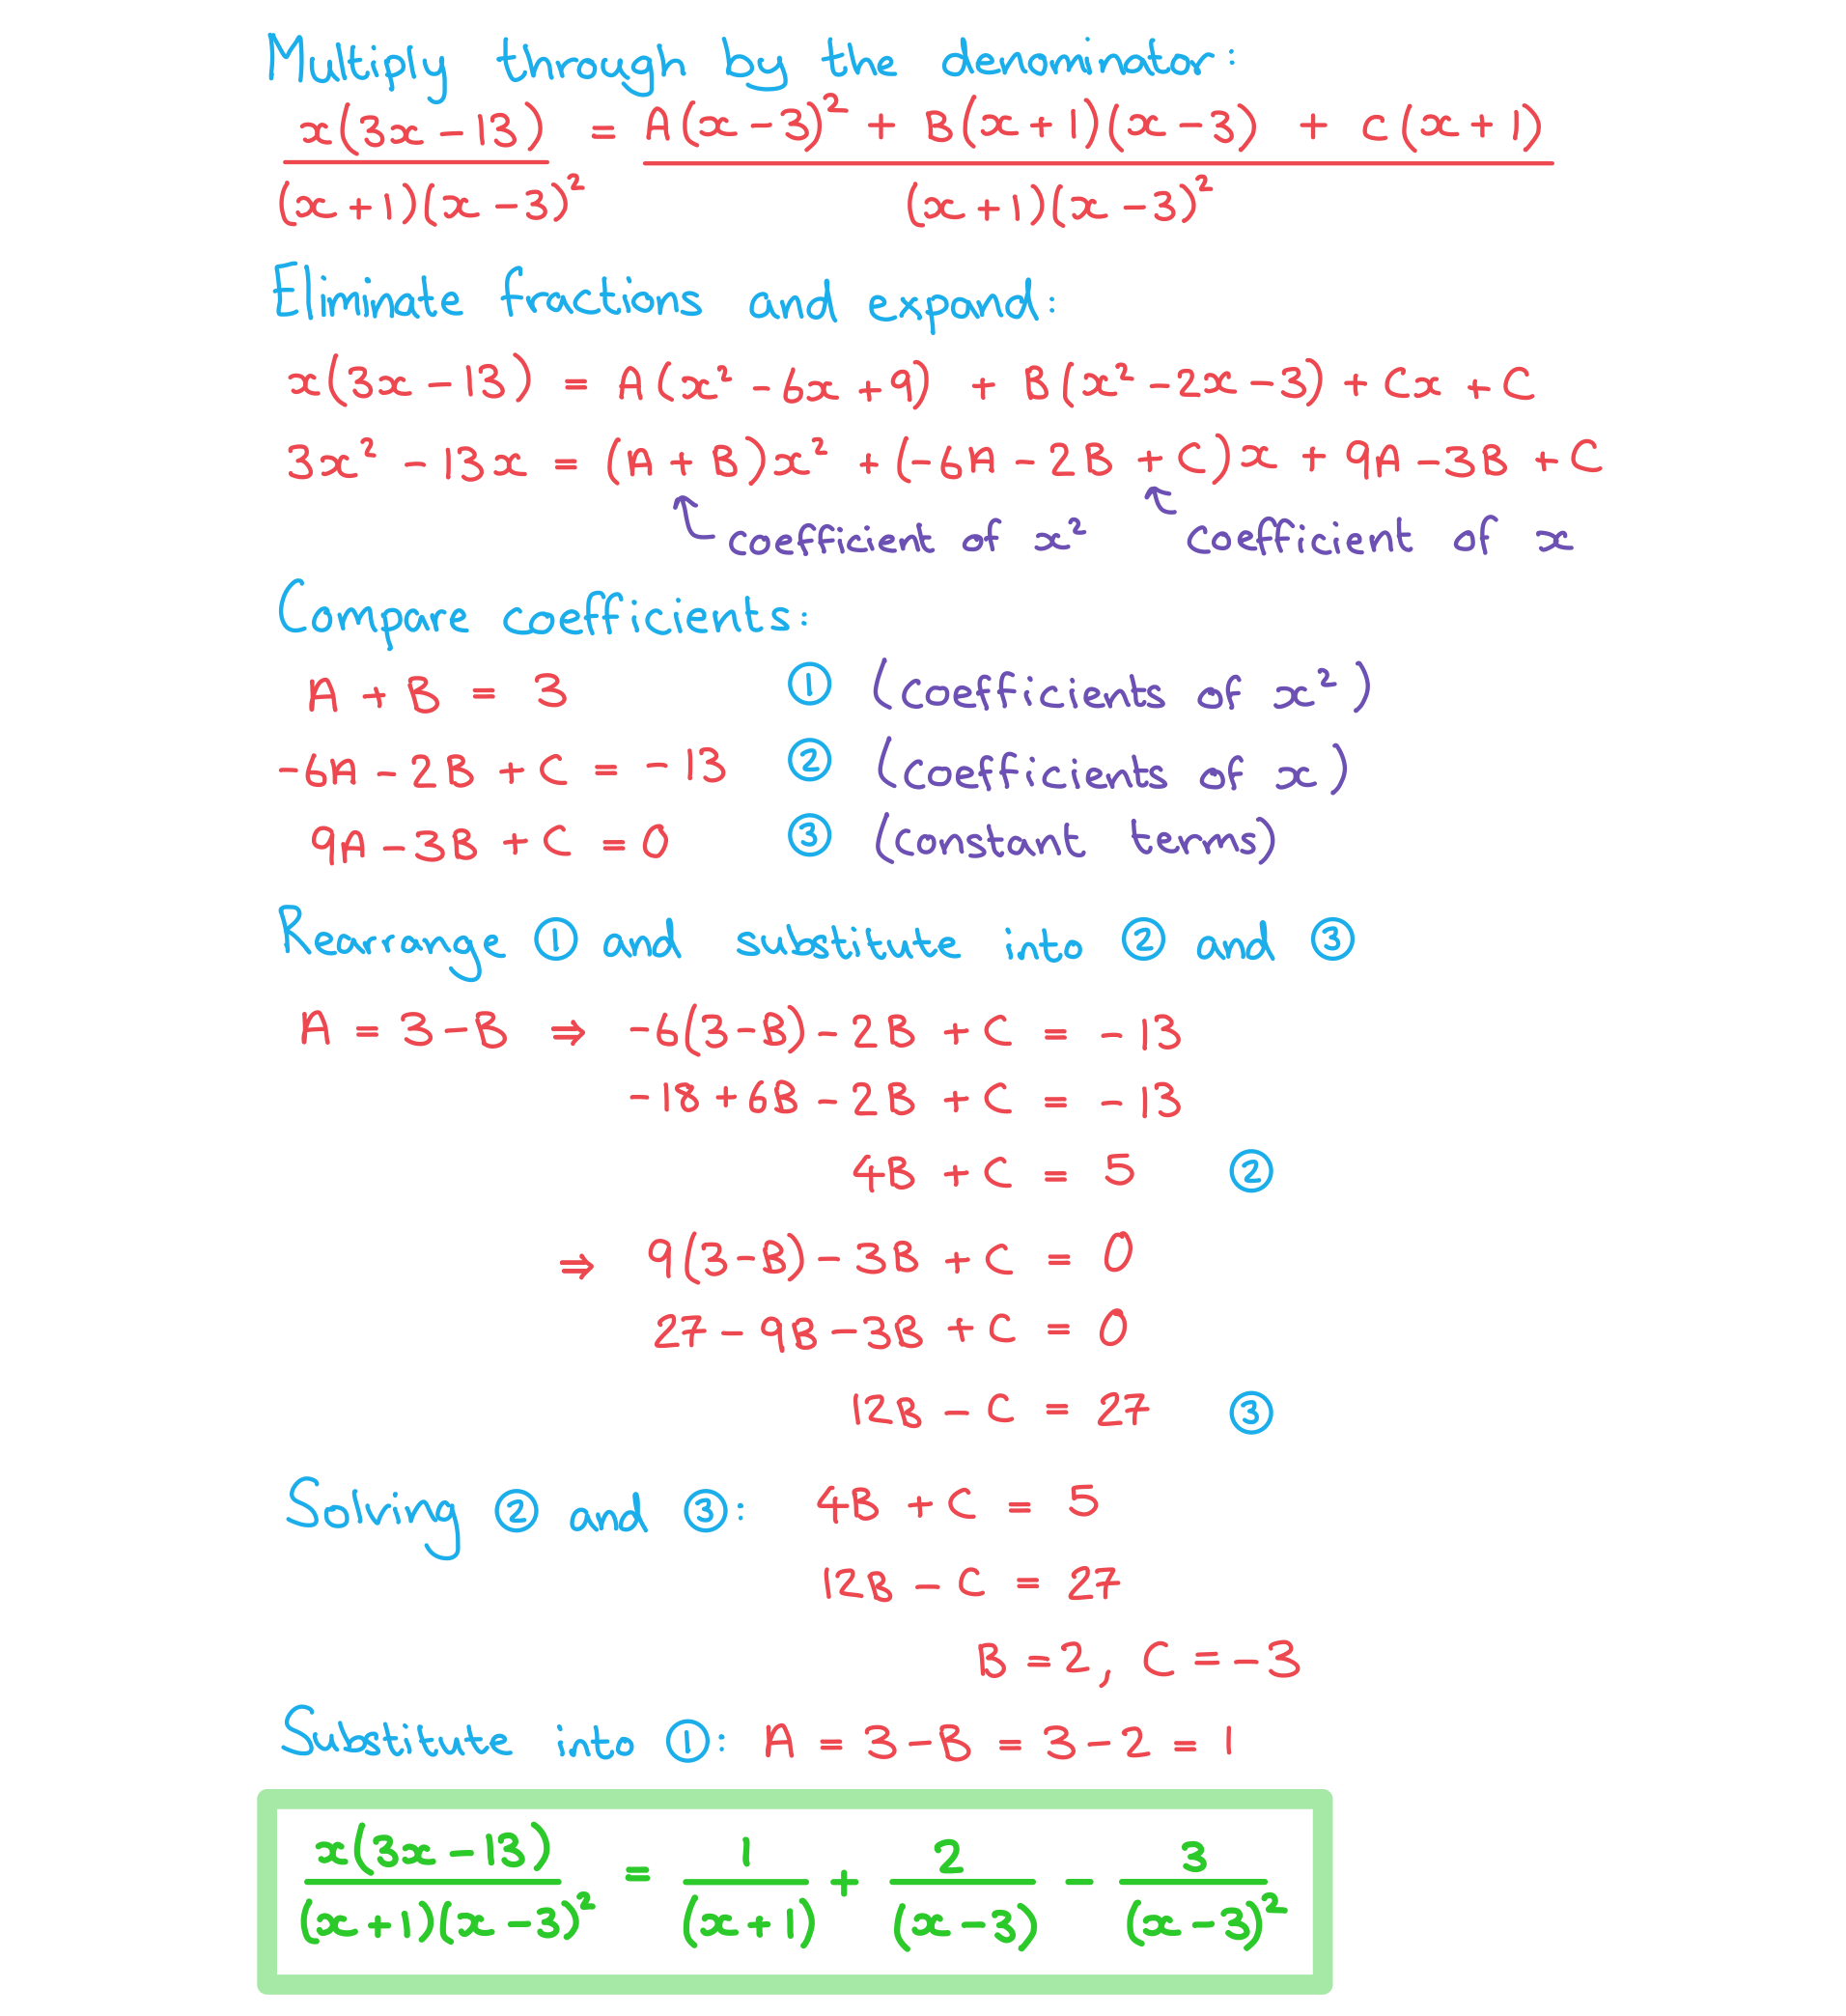 Multiply through by the denominator:
x(3x - 13) / (x + 1)(x - 3)² = A(x - 3)² + B(x + 1)(x - 3) + C(x + 1) / (x + 1)(x - 3)²
Eliminate fractions and expand:
x(3x - 13) = A(x² - 6x + 9) + B(x² - 2x - 3) + Cx + C
3x² - 13x = (A + B)x² + (-6A - 2B + C)x + 9A - 3B + C
coefficient of x² coefficient of x
Compare coefficients:
A + B = 3 ① (coefficients of x²)
-6A - 2B + C = -13 ② (coefficients of x)
9A - 3B + C = 0 ③ (constant terms)
Rearrange ① and substitute into ② and ③
A = 3 - B ⇒ -6(3 - B) - 2B + C = -13
-18 + 6B - 2B + C = -13
4B + C = 5 ②
⇒ 9(3 - B) - 3B + C = 0
27 - 9B - 3B + C = 0
12B - C = 27 ③
Solving ② and ③: 4B + C = 5
12B - C = 27
B = 2, C = -3
Substitute into ①: A = 3 - B = 3 - 2 = 1
x(3x - 13) / (x + 1)(x - 3)² = 1 / (x + 1) + 2 / (x - 3) - 3 / (x - 3)²